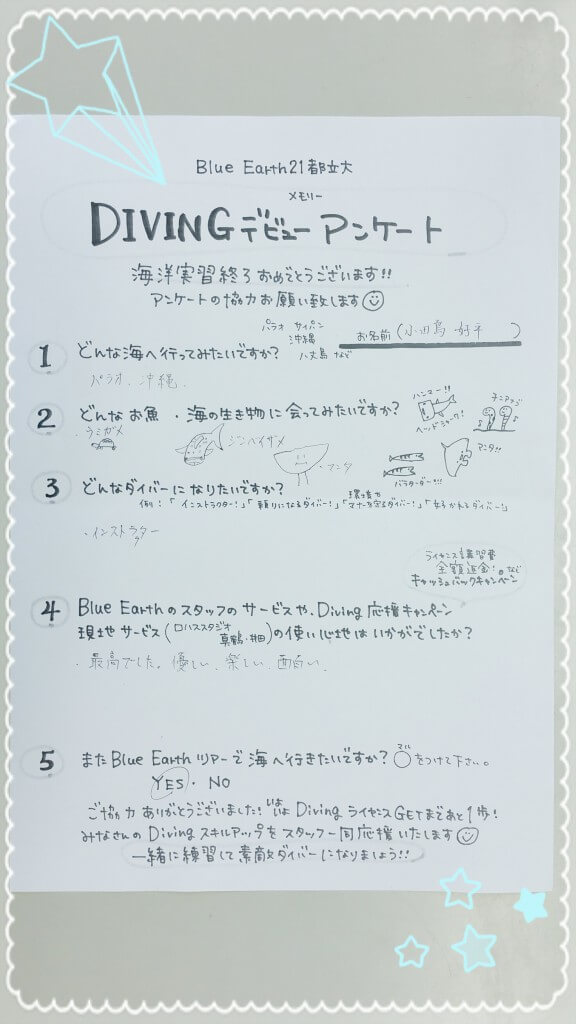 Blue Earth21都立大
メモリー
DIVINGデビューアンケート
海洋実習終了おめでとうございます!!
アンケートの協力お願い致します
お名前(小田島 好平)
1 どんな海へ行ってみたいですか?
パラオ サイパン
沖縄
八丈島 など
パラオ、沖縄、
2 どんなお魚・海の生き物に会ってみたいですか?
ハンマー!!
ヘッドシャーク!
チンアナゴ
マンタ!!
バラクーダー!!!
・ウミガメ
・ジンベイザメ
・マンタ
3 どんなダイバーになりたいですか?
例:「インストラクター!」「頼りになるダイバー!」「環境やマナーを守るダイバー!」「好かれるダイバー!」
・インストラクター
ライセンス講習費
全額返金!など
キャッシュバックキャンペーン
4 Blue Earthのスタッフのサービスや、Diving応援キャンペーン
現地サービス(ロハススタジオ 真鶴・井田)の使い心地はいかがでしたか?
・最高でした。優しい、楽しい、面白い、
5 またBlue Earthツアーで海へ行きたいですか?○をつけて下さい。
マル
YES・NO
ご協力ありがとうございました!いよいよDivingライセンスGETまであと1歩!
みなさんのDivingスキルアップをスタッフ一同応援いたします
一緒に練習して素敵ダイバーになりましょう!!